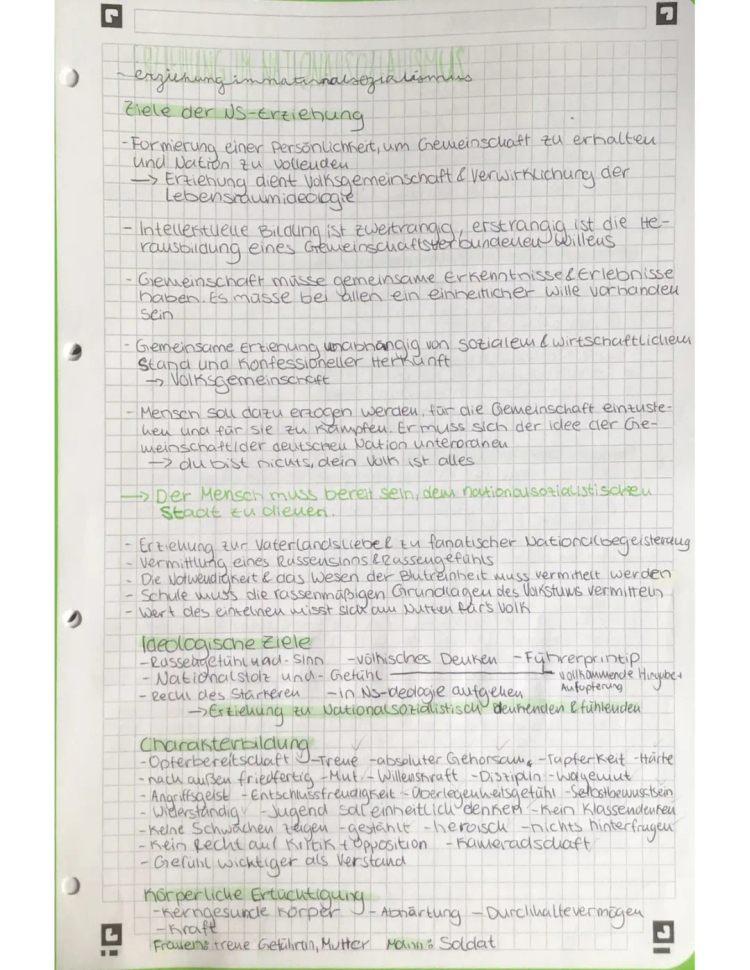 ERZIEHUNG IM NATIONALSOZIALISMUS
- erziehung im nationalsozialismus
Ziele der NS-Erziehung
- Formierung einer Persönlichkeit, um Gemeinschaft zu erhalten
und Nation zu vollenden
--> Erziehung dient Volksgemeinschaft & Verwirklichung der
Lebensraumideologie
- Intellektuelle Bildung ist zweitrangig, erstrangig ist die He-
rausbildung eines Gemeinschaftsverbundenen Willens
- Gemeinschaft müsse gemeinsame Erkenntnisse & Erlebnisse
haben. Es müsse bei allen ein einheitlicher Wille vorhanden
sein
- Gemeinsame Erziehung unabhängig von sozialem & wirtschaftlichem
Stand und konfessioneller Herkunft
-> Volksgemeinschaft
- Mensch soll dazu erzogen werden, für die Gemeinschaft einzuste-
hen und für sie zu kämpfen. Er muss sich der Idee der Ge-
meinschaft/der deutschen Nation unterordnen
-> du bist nichts, dein Volk ist alles
--> Der Mensch muss bereit sein, dem nationalsozialistischen
Staat zu dienen.
- Erziehung zur Vaterlandsliebe & zu fanatischer Nationalbegeisterung
- Vermittlung eines Rassensinns & Rassengefühls
- Die Notwendigkeit & das Wesen der Blutreinheit muss vermittelt werden
- Schule muss die rassenmäßigen Grundlagen des Volkstums vermitteln
- Wert des einzelnen misst sich am Nutzen für's Volk
Ideologische Ziele
- Rassegefühl und -Sinn - völkisches Denken - Führerprinzip
- Nationalstolz und - Gefühl vollkommende Hingabe +
- Recht des Stärkeren - in NS-Ideologie aufgehen Aufopferung
-> Erziehung zu Nationalsozialistisch denkenden & fühlenden
Charakterbildung
- Opferbereitschaft - Treue - absoluter Gehorsam - Tapferkeit - Härte
- nach außen friedfertig - Mut - Willenskraft - Disziplin - Wagemut
- Angriffsgeist - Entschlussfreudigkeit - Überlegenheitsgefühl - Selbstbewusstsein
- Widerständig - Jugend soll einheitlich denken - Kein Klassendenken
- Keine Schwächen zeigen - gestählt - heroisch - nichts hinterfragen
- Kein Recht auf Kritik + Opposition - Kameradschaft
- Gefühl wichtiger als Verstand
Körperliche Ertüchtigung
- Kerngesunde Körper - Abhärtung - Durchhaltevermögen
- Kraft
Frauen: treue Gefährtin, Mutter Mann: Soldat